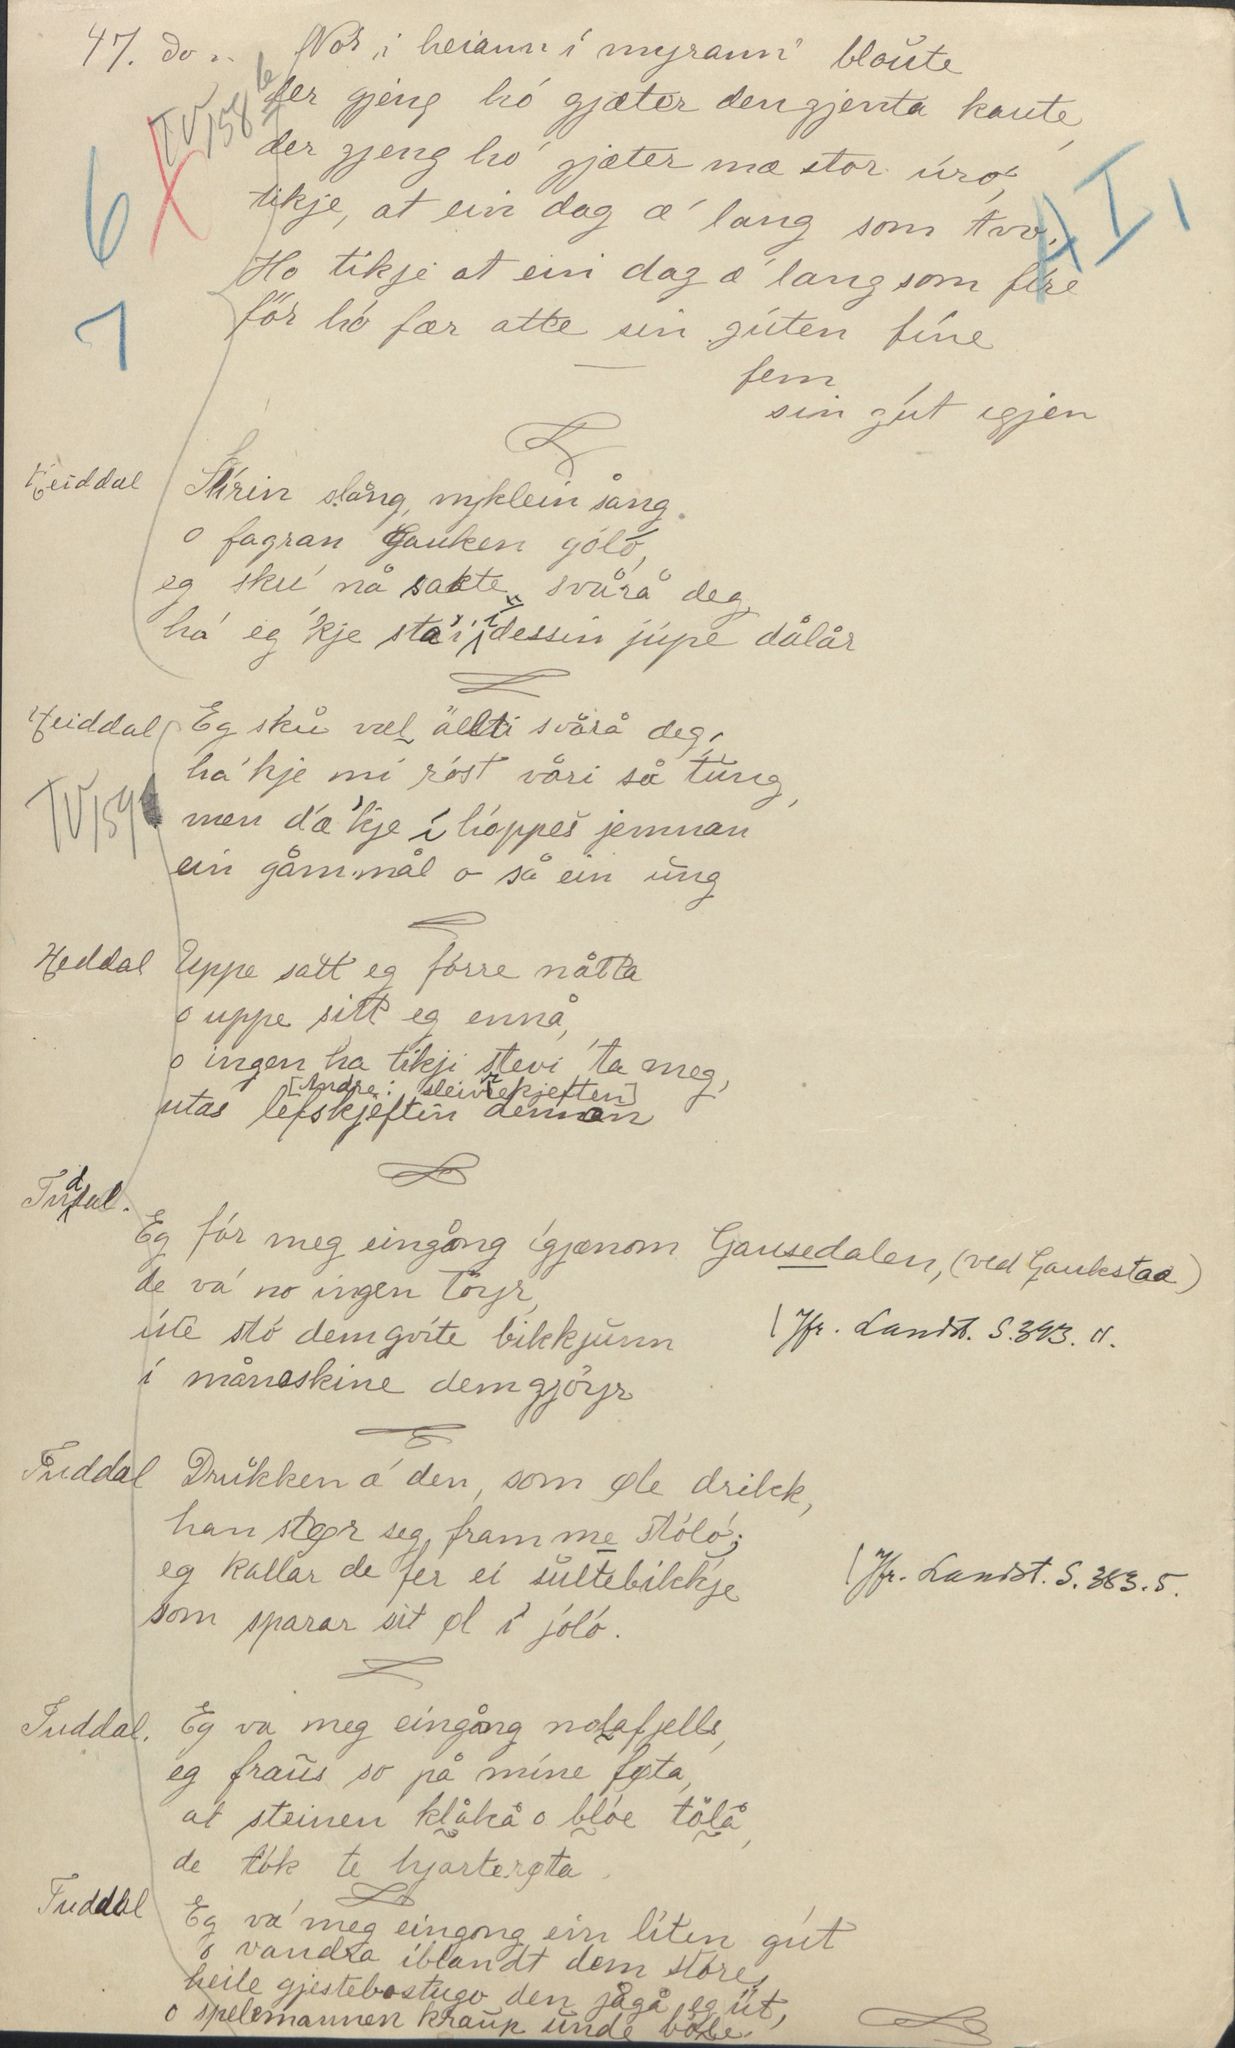 47. do „ Nor i heiann i myrann' bloute
der gjeng hó gjæter den gjenta kaute,
der gjeng hó gjæter mæ stor úró,
tikje, at ein dag æ' lang som tvo.
Ho tikje at ein dag æ' lang som fíre
för hó fær atte sin gúten fíne
fem
sin gút igjen
IV, 158 b
X
6
1
I,
Heiddal Skrin slång, myklein sång
o fagran Gauken góló,
eg skú nå sakte svårå deg,
há eg 'kje stai i dessin júpe dålår
Heiddal Eg skú væl ällti svårå deg,
há'kje mi róst våri så tũng,
men d'æ 'kje i hóppes jemnan
ein gåmmål o så ein ũng
IV 159
Heddal Uppe satt eg fórre nåtta
o uppe sitt eg ennå,
o ingen ha tikji stevi 'ta meg,
[Andre: sleivekjeften]
utas lefskjeftin dennan
Tuddal.
Eg fór meg eingång igjænom Gausedalen, (ved Gaukstaa)
de vá no ingen töyr,
úte stó dem gvite bikkjunn
i måneskine dem gjöyr
| Jfr. Landst. S. 393. 4.
Tuddal Drukken æ' den, som øle drikk,
han støyr seg framme stóló;
eg kallar de fer ei sultebikkje
som sparar sit øl i jóló.
| Jfr. Landst. S. 383. 5.
Tuddal. Eg va meg eingång nolafjells,
eg fraus so på míne føta,
at steinen klåkå o blóe tölå,
de tók te hjarterøta.
Tuddal Eg vá meg eingong ein líten gút
o vandra iblandt dem store,
heile gjestebostugo den jågå eg út,
o spelemannen kraup unde bóle.